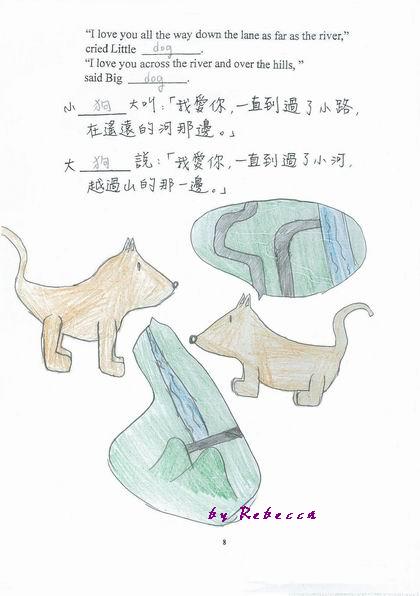 “I love you all the way down the lane as far as the river,”
cried Little dog.
“I love you across the river and over the hills, ”
said Big dog.
小 狗 大叫:「我愛你,一直到過了小路,
在遙遠的河那邊。」
大 狗 說:「我愛你,一直到過了小河,
越過山的那一邊。」
by Rebecca
8